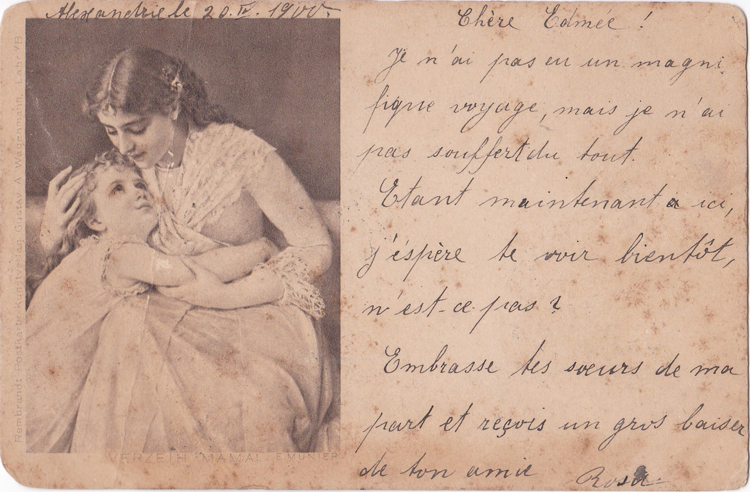 Alexandrie le 20. IV. 1900.
Chère Edmée !
Je n'ai pas eu un magni
fique voyage, mais je n'ai
pas souffert du tout.
Etant maintenant a ici,
j'éspère te voir bientôt,
n'est-ce pas ?
Embrasse tes sœurs de ma
part et reçois un gros baiser
de ton amie
Rosa.
VERZEIH' MAMA!